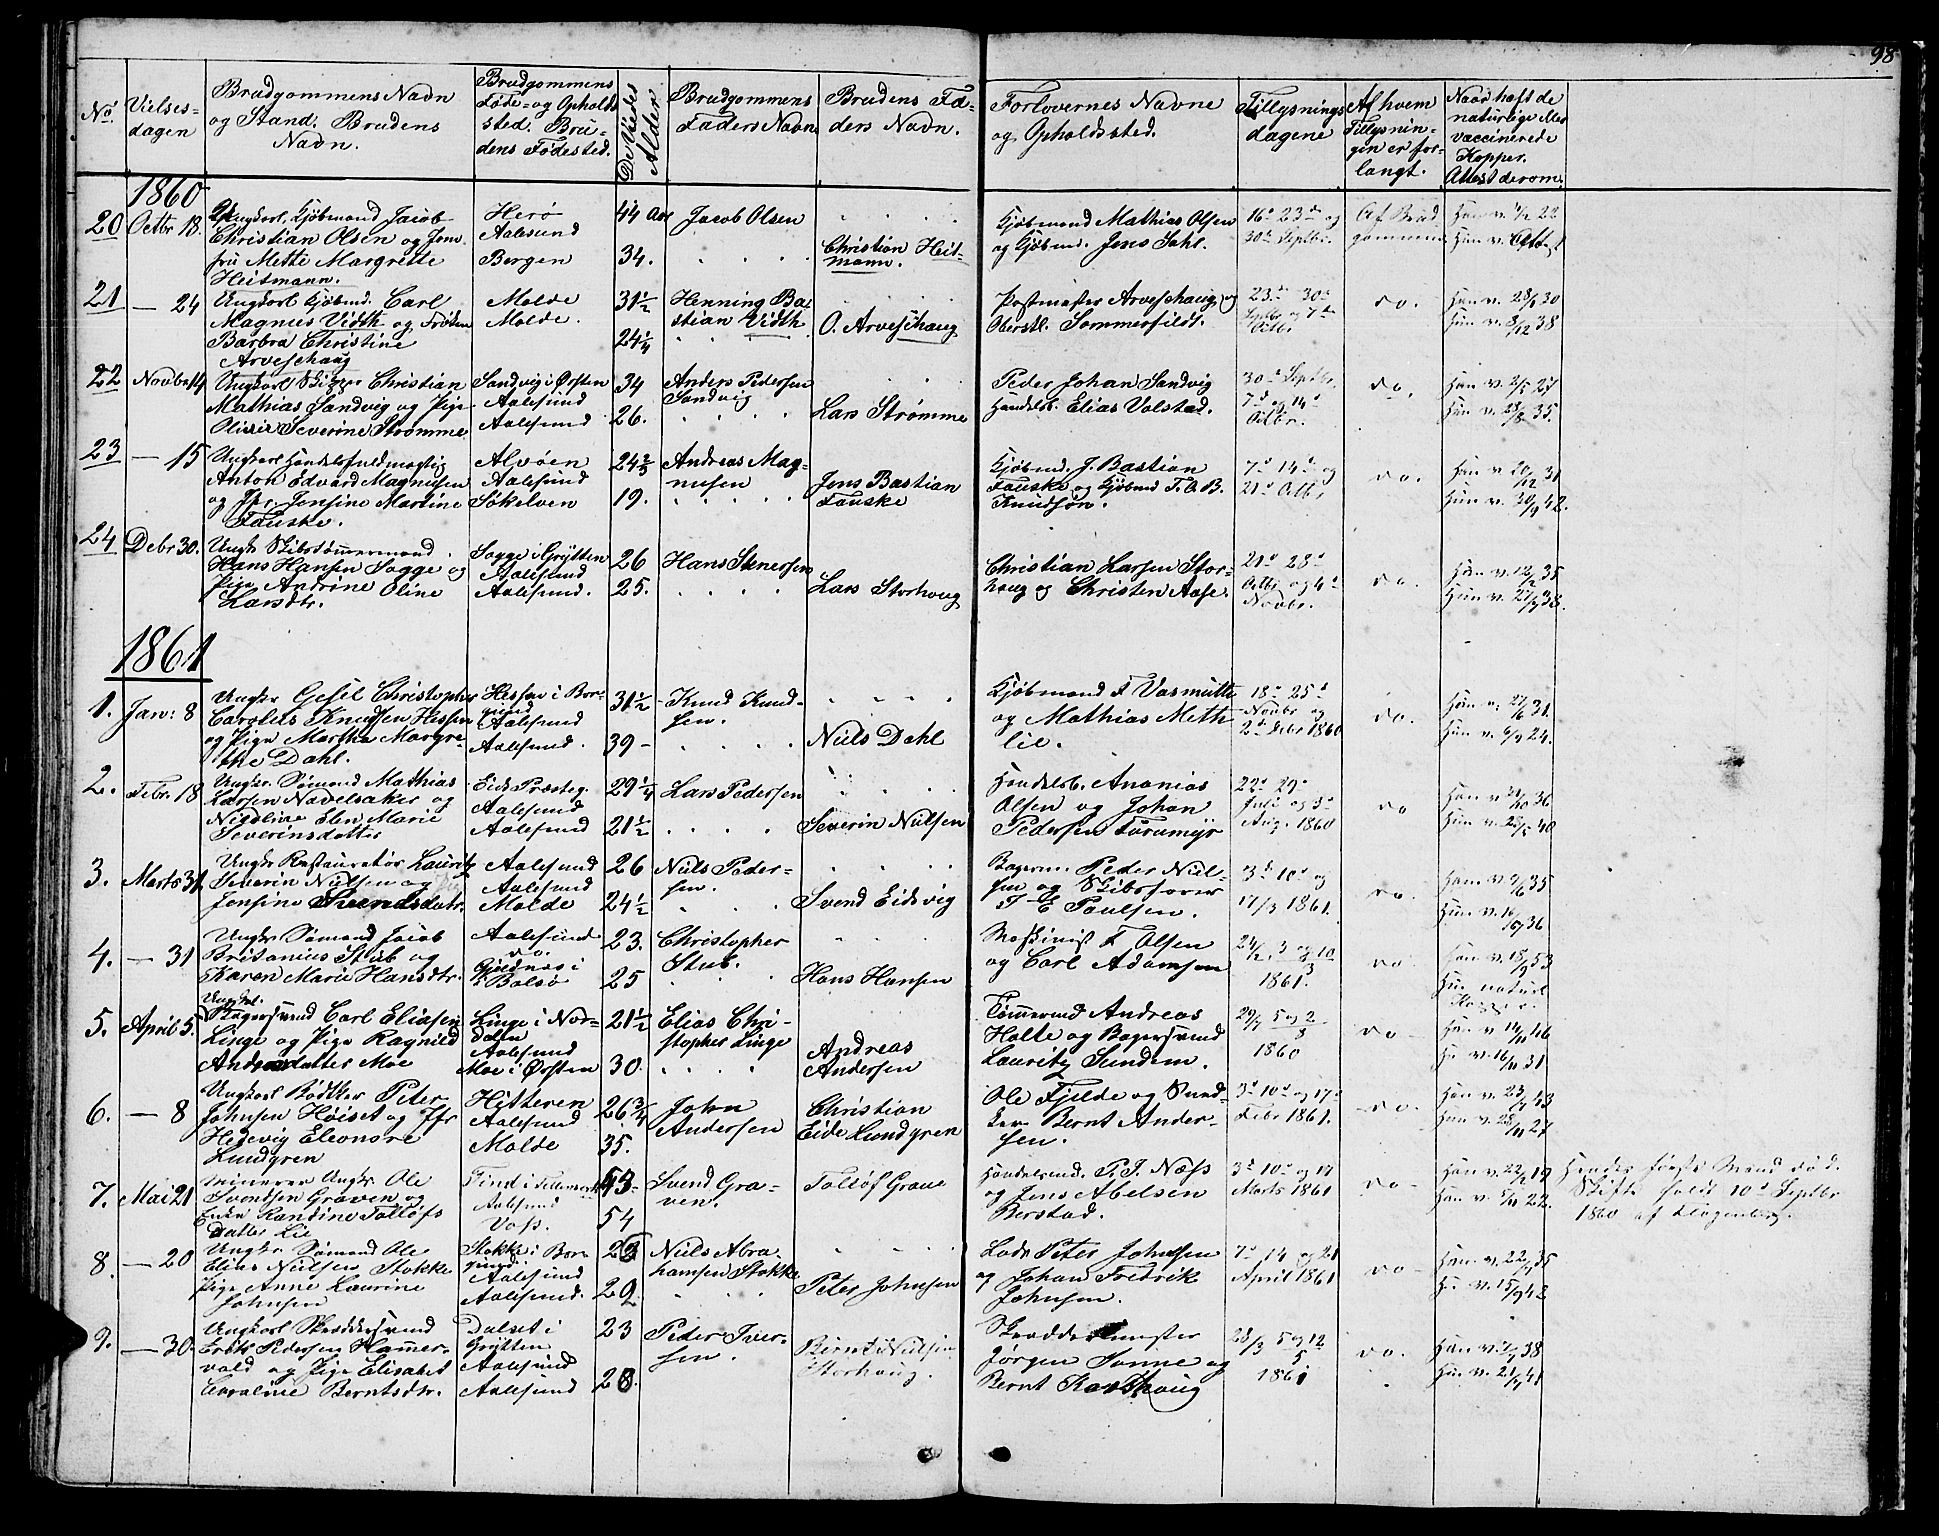 98
No.
Vielses-
dagen
Brudgommens Navn
og Stand. Brudens
Navn.
Brudgommens
Føde- og Opholds
sted. Bru-
dens Fødested.
De Viedes
Alder.
Brudgommens
Faders Navn.
Brudens Fa-
ders Navn.
Forlovernes Navne
og Opholdssted.
Tillysnings
dagene
Af hvem
Tillysnin-
gen er for-
langt.
Naar haft de
naturlige eller
vaccinerede
Kopper.
Attest derom.
1860
20
Octbr 18.
Ungkarl, Kjøbmand Jacob
Christian Olsen og Jom-
fru Mette Margrette
Heitmann.
Herø
Aalesund
Bergen
44 Aar
34.
Jacob Olsen
Christian Heit-
mann.
Kjøbmand Mathias Olsen
og Kjøbmd. Jens Dahl.
16d 23d og
30d Septbr.
Af Brud
gommen
21
— 24
Ungkarl Kjøbmd. Carl
Magnus Vidth og Frøken
Barbra Christine
Arveschaug
Molde
Molde.
31½
24¼
Henning Ba-
stian Vidth
O. Arveschaug
Postmester Arveschaug og
Oberstl. Sommerfildt.
23d 30d
Septbr og 7d
Octbr
do.
Han v. 28/6 30
Hun v. 8/12 38
22
Novbr 14
Ungkarl Skipper Christian
Mathias Sandvig og Pige
Severine Strømme
Sandvig i Ørsten
Aalesund
Aalesund
34
26.
Anders Pedersen
Sandvig
Lars Strømme
Peder Johan Sandvig
Handelsb. Elias Valstad.
30d Septbr.
7d og 14d
Octbr.
do.
Han v. 2/5 27
Hun v. 28/8 35.
23
— 15
Ungkarl Handelsfuldmægtig
Anton Edvard Magnusen
og Jfr. Jensine Martine
Fauske.
Alvøen
Aalesund
Søkelven
19.
Andreas Mag-
nusen
Jens Bastian
Fauske
Kjøbmd. J. Bastian
Fauske og Kjøbmd T. A. B.
Knudsøn.
7d 14d og
21d Octbr
do.
Han v 20/12 31
Hun v. 30/9 42.
24
Debr 30.
Ungk. Skibstømmermand
Hans Hansen Sogge og
Pige Andrine Oline
Larsdtr.
Sogge i Grytten
Aalesund
Aalesund.
26
25.
Hans Stenersen
Lars Storhoug
Christian Larsen Stor-
houg og Christen Aase.
21d 28d
Octbr og 4d
Novbr.
do.
Han v. 12/2 35
Hun v. 27/9 38.
1861
1.
Jan: 8
Ungkr Christopher
Carolus Knudsen Hessen
og Pige Martha Margre-
the Dahl.
Hessen i Bor-
gund
Aalesund
Aalesund.
31½
39 –
Knud Knud-
sen.
Niels Dahl
Kjøbmand F Vasmutt
og Mathias Meth
lie.
18d 25d
Novbr og
2d Debr 1860
do.
Han v. 27/6 31.
Hun v. 6/9 24.
2.
Febr. 18
Ungkr. Sømand Mathias
Larsen Navelsaker og
Nicoline Elen Marie
Severinsdatter
Eids Præsteg.
Aalesund
Aalesund
29¼
21½
Lars Pedersen
Severin Nielsen
Handelsb. Ananias
Olsen og Johan
Pedersen Furumyr
22d 29d
Juli og 5d
Aug. 1860
do
Hun v. 28/5 40
3.
Marts 31
Ungkr Restauratør Lauritz
Severin Nielsen og
Jensine Svendsdatr.
Aalesund
Aalesund
Molde
26
24½
Niels Peder-
sen.
Svend Eidsvig
Bagerm. Peder Niel-
sen og Skibsfører
T E Paulsen.
3d 10d og
17/3 1861.
do.
Han v. 9/6 35
Hun v. 16/10 36
4.
— 31
Ungkr Sømand Jacob
Britanius Stub og
Karen Marie Hansdtr.
Aalesund
do.
i
Bolsø
23.
25
Christopher
Stub.
Hans Hansen
Maskinist F Olsen
og Carl Adamsen
24/2 3 og 10
3
1861.
do
Han v. 18/9 53
Hun naturl
Kopper.
5.
April 5.
Ungkl.
Bagersvend Carl Eliasen
Linge og Pige Ragnild
Andersdatter Moe
Linge i Nor-
dalen
Aalesund
Moe i Ørsten
21½
30.
Elias Chri-
stopher Linge
Andreas
Andersen
Tømmermd Andreas
Holte og Bagersvend
Lauritz Sundem.
29/7 5 og 2
8
1860
do –
Han v 14/11 46
Hun v. 16/11 31
6.
— 8
Ungkarl Bødtker Peter
Johnsen Høiset og Jfr
Hedevig Eleonore
Lundgren
Hitteren
Aalesund
Molde
26¾
35.
John
Andersen
Christian
Eide Lundgren
Ole Fjelde og Sned-
ker Bernt Ander-
sen.
3d 10d og 17d
Febr 1861.
do.
Han v. 23/7 43
Hun v. 28/11 27
7.
Mai 21
Minerer Ungkr. Ole
Svendsen Graven og
Enke Randine Tolløfs
datter Lie
Aalesund
Voss.
43
54
Svend Gra-
ven.
Tolløf Grave
Handelsmd. P. J. Næss
og Jens Abelsen
Berstad.
3d 10d og 17
Marts 1861
do –
Han v. 22/2 19
Hun v. 5/10 22.
Hendes første Mand død.
Skifte holdt 10d Septbr
1860 af
8.
— 20
Ungkr Sømand Ole
Elias Nielsen Stokke
Pige Anne Laurine
Johnsen
Stokke i Bor-
gund.
Aalesund
Aalesund.
23
29.
Niels Abra-
hamsen Stokke
Peter Johnsen
Lods Peter Johnsen
og Johan Fredrik
Johnsen.
7d 14 og 21
April 1861
do –
Han v. 22/7 35
Hu v. 15/9 42
9.
— 30.
Ungkarl Skræddersvend
Erik Pedersen Hammer-
vold og Pige Elisabet
Caroline Berntsdtr.
Dalset i
Grytten
Aalesund
Aalesund
23
28.
Peder Iver-
sen.
Bernt Nielsen
Storhoug.
Skræddermester
Jørgen Sonne og
Bernt
28/3 5 og 12
5
1861
do.
Hun v. 21/7 41